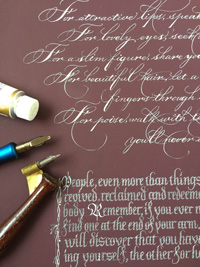 For attractive lips, speak
For lovely eyes, seek
For a slim figure, share you
For beautiful hair, let a
fingers through
For poise, walk with
you'll never
People, even more than things
revived, reclaimed and redeeme
body. Remember, if you ever n
find one at the end of your arm.
will discover that you have
ing yourself, the other for